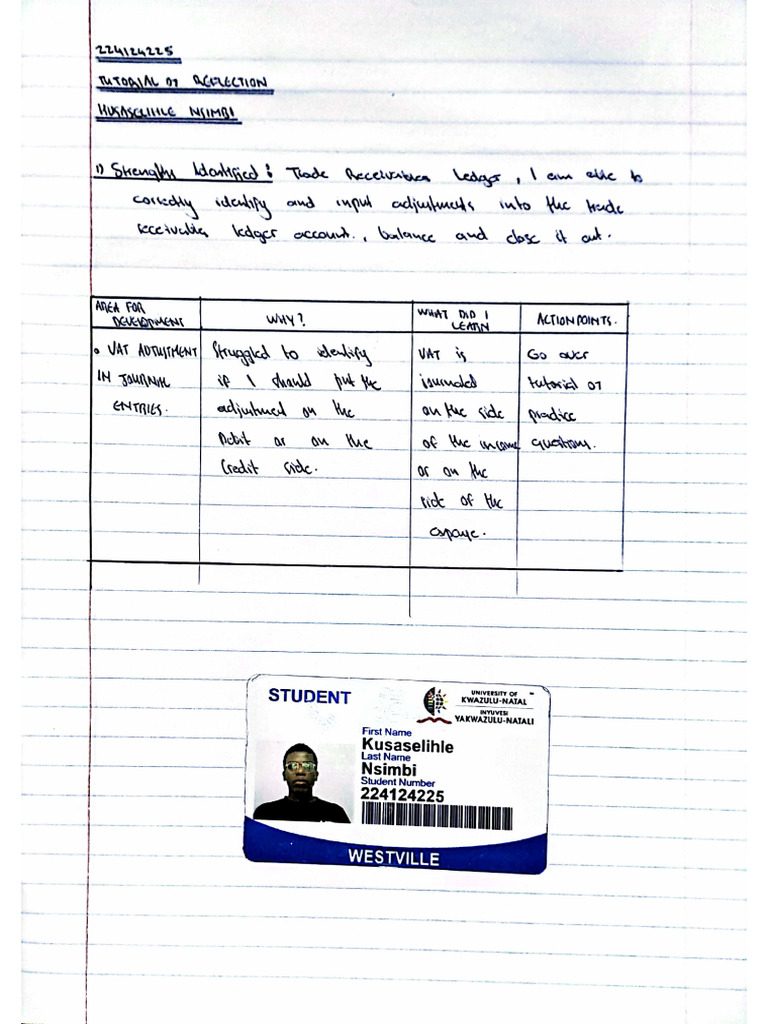 224124225
TUTORIAL 07 REFLECTION
KUSASELIHLE NSIMBI
1) Strengths Identified: Trade Receivables Ledger, I am able to
correctly identify and input adjustments into the trade
receivables ledger account., balance and close it out.
AREA FOR DEVELOPMENT
WHY?
WHAT DID I LEARN
ACTION POINTS.
VAT ADJUSTMENT
IN JOURNAL
ENTRIES.
Struggled to identify
if I should put the
adjustment on the
Debit or on the
Credit side.
VAT is
journaled
on the side
of the income
or on the
side of the
expense.
Go over
tutorial 07
practice
questions.
STUDENT
UNIVERSITY OF
KWAZULU-NATAL
INYUVESI
YAKWAZULU-NATALI
First Name
Kusaselihle
Last Name
Nsimbi
Student Number
224124225
WESTVILLE